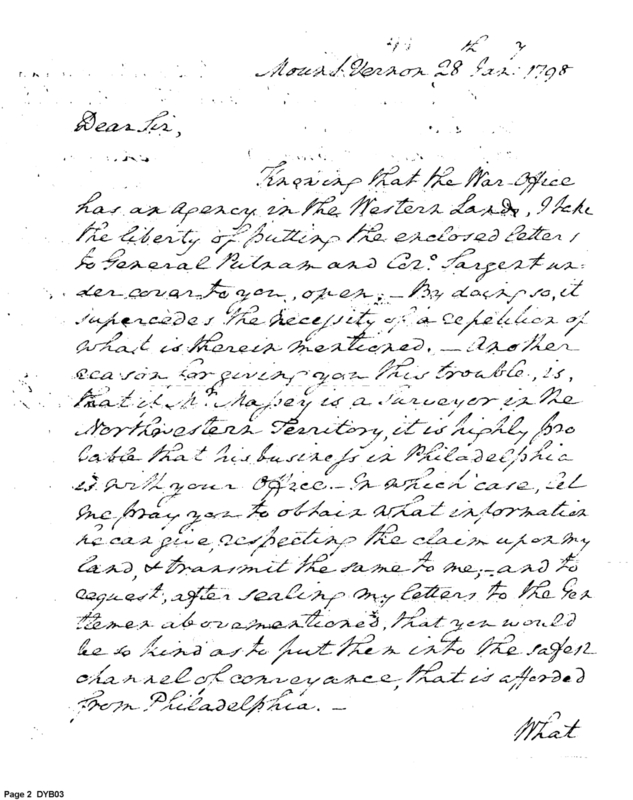 Mount Vernon 28th Jany 1798
Dear Sir,
Knowing that the War Office
has an agency in the Western Lands, I take
the liberty of putting the enclosed letters
to General Putnam and Colo. Sargent un-
der cover to you, open; — By doing so, it
supercedes the necessity of a repetition of
what is therein mentioned. — Another
reason for giving you this trouble, is,
that if Mr. Massey is a Surveyor in the
Northwestern Territory, it is highly pro
bable that his business in Philadelphia
is with your Office. — In which case, let
me pray you to obtain what information
he can give, respecting the claim upon my
land, & transmit the same to me; — and to
request, after sealing my letters to the Gen
tlemen abovementioned, that you would
be so kind as to put them into the safest
channel of conveyance, that is afforded
from Philadelphia. —
What
Page 2 DYB03